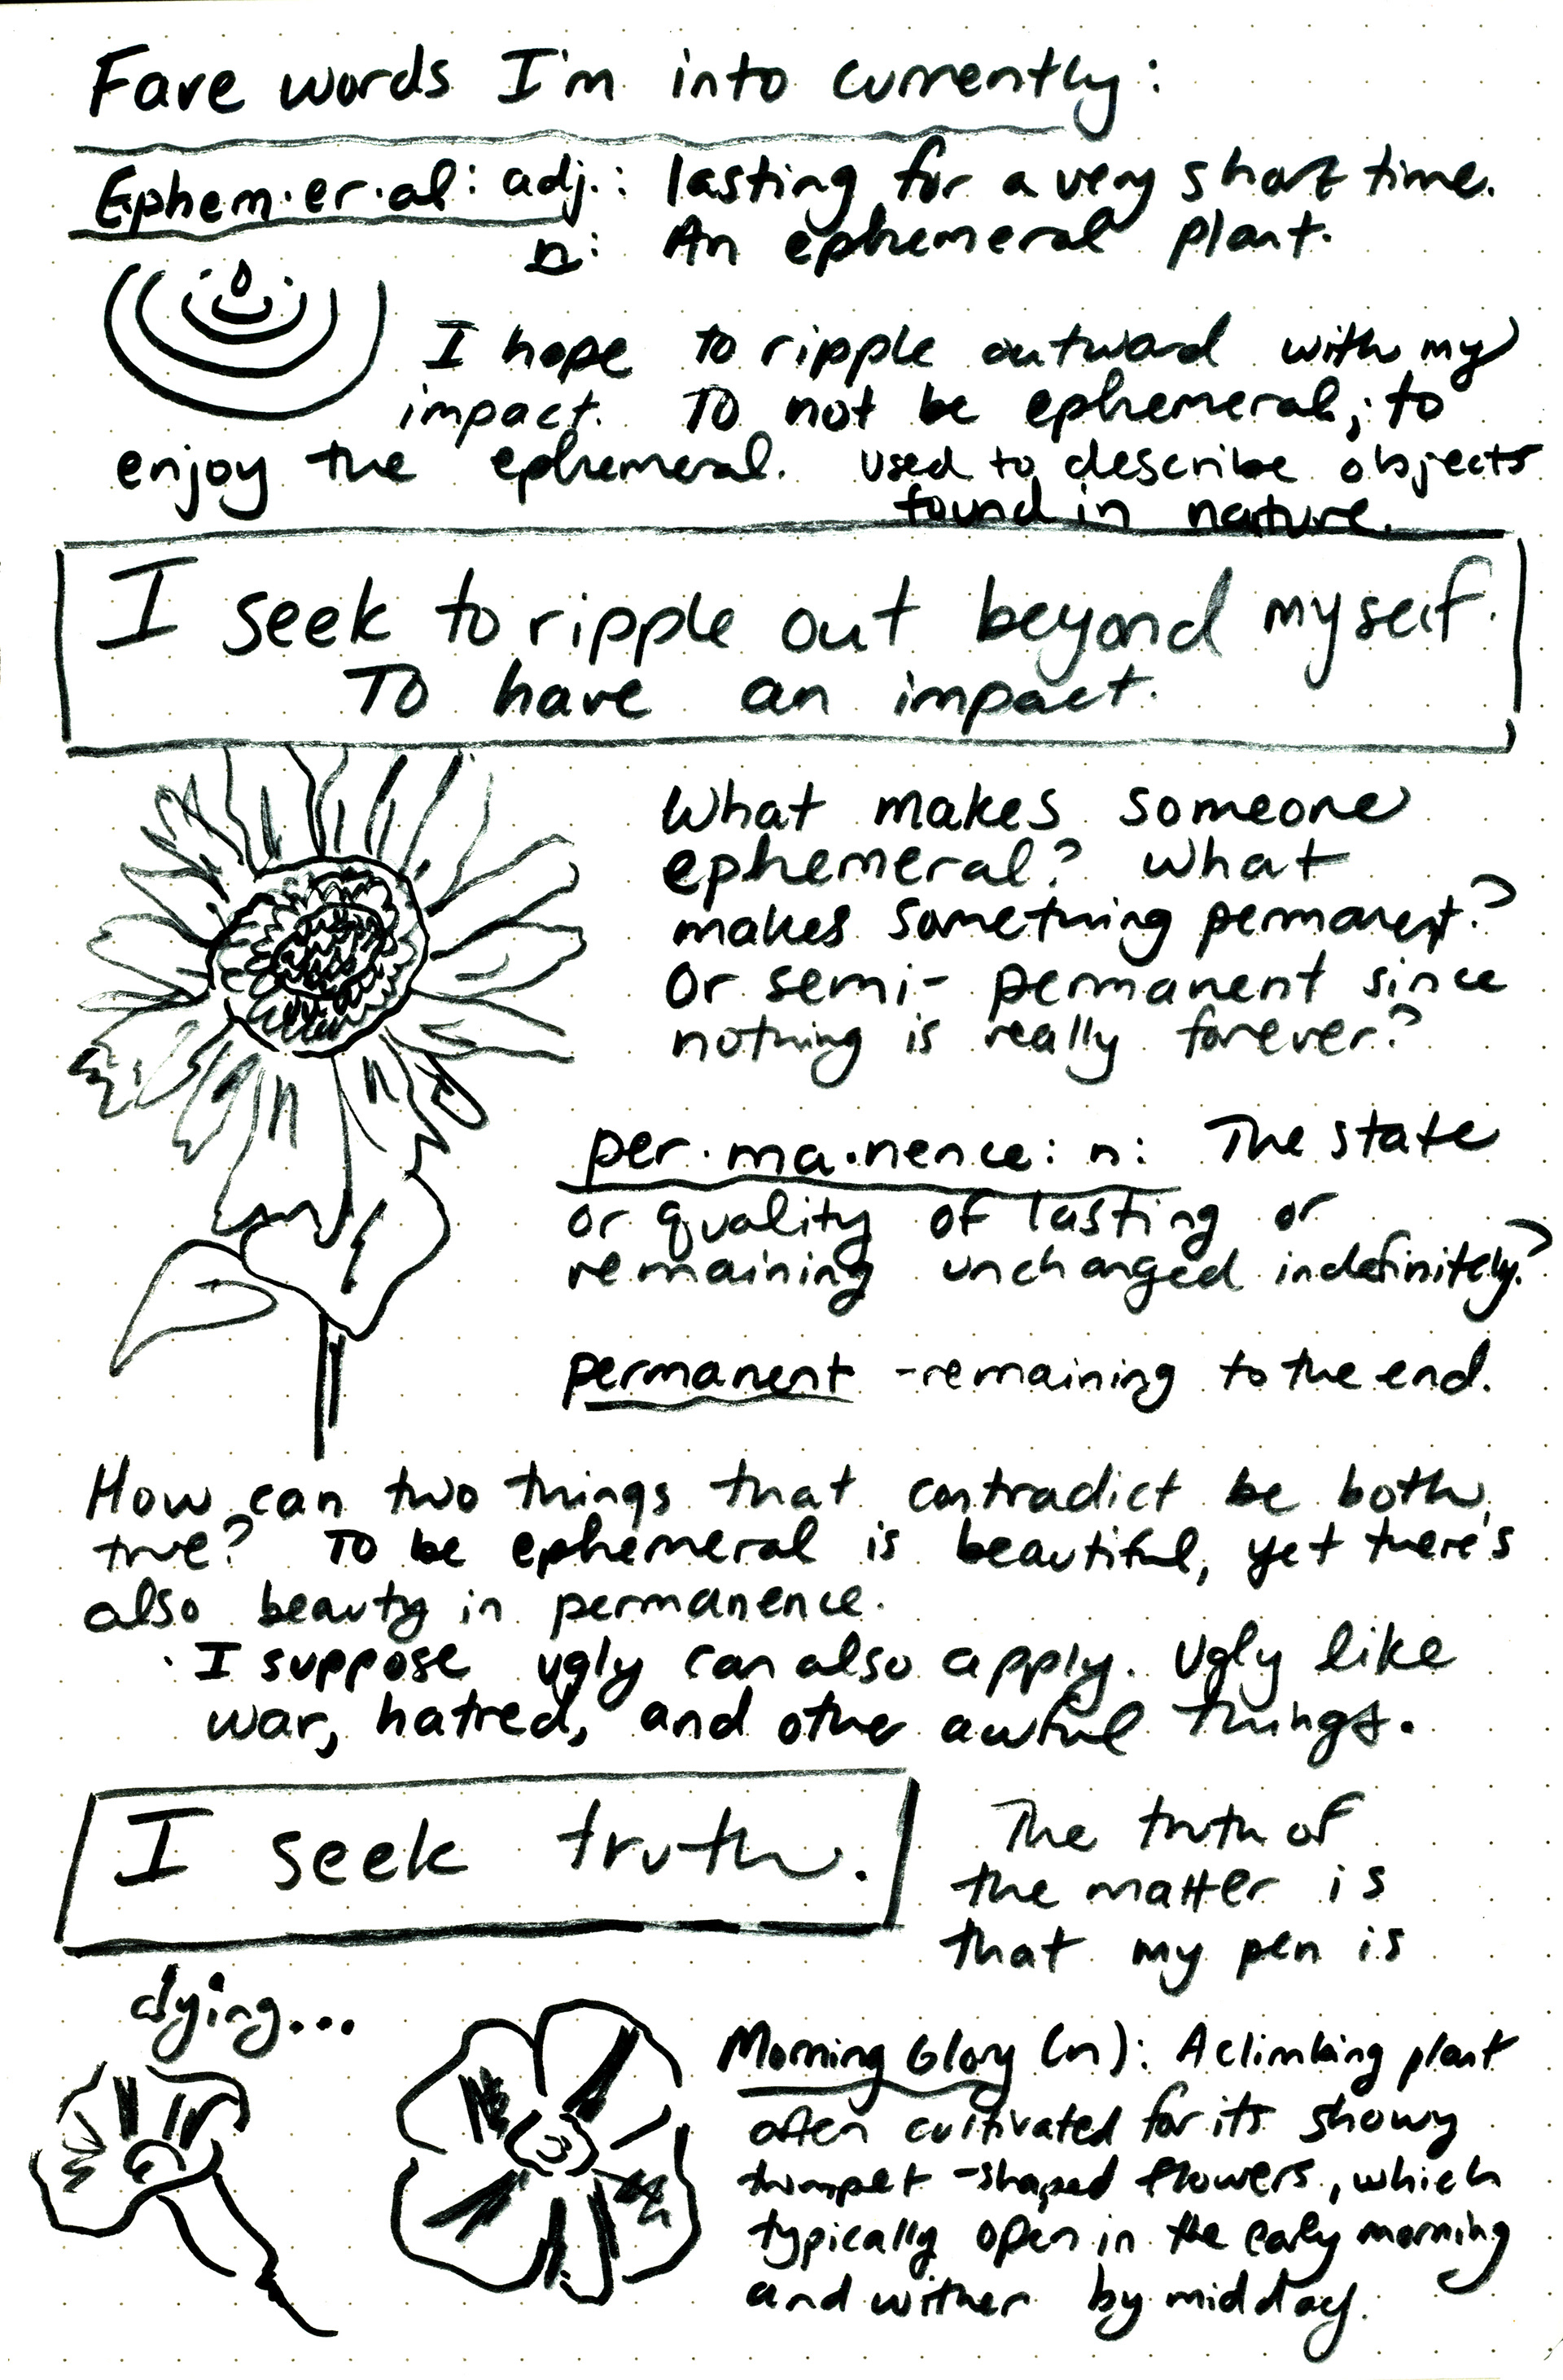 Fave words I'm into currently:
Ephem·er·al: adj.: lasting for a very short time.
n: An ephemeral plant.
I hope to ripple outward with my
impact. To not be ephemeral; to
enjoy the ephemeral. used to describe objects
found in nature.
I seek to ripple out beyond myself.
To have an impact.
What makes someone
ephemeral? What
makes something permanent?
Or semi- permanent since
nothing is really forever?
per·ma·nence: n: The state
or quality of lasting or
remaining unchanged indefinitely?
permanent -remaining to the end.
How can two things that contradict be both
true? To be ephemeral is beautiful, yet there's
also beauty in permanence.
· I suppose ugly can also apply. Ugly like
war, hatred, and other awful things.
I seek truth.
The truth of
the matter is
that my pen is
dying...
Morning Glory (n): A climbing plant
often cultivated for its showy
trumpet -shaped flowers, which
typically open in the early morning
and wither by midday.